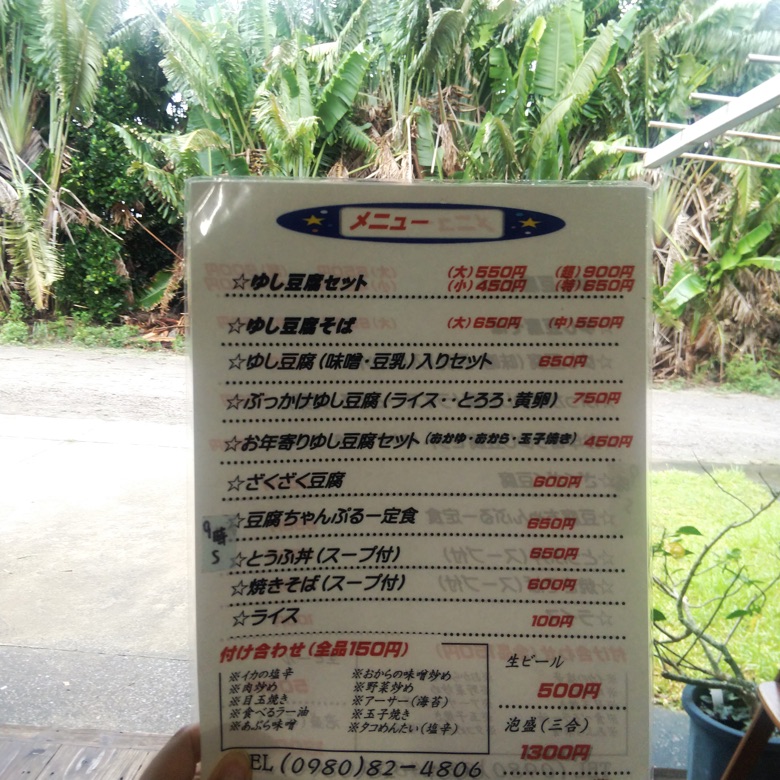 メニュー
☆ゆし豆腐セット (大)550円 (超)900円
(小)450円 (特)650円
☆ゆし豆腐そば (大)650円 (中)550円
☆ゆし豆腐(味噌・豆乳)入りセット 650円
☆ぶっかけゆし豆腐(ライス・・とろろ・黄卵) 750円
☆お年寄りゆし豆腐セット(おかゆ・おから・玉子焼き) 450円
☆ざくざく豆腐 600円
☆豆腐ちゃんぷるー定食 650円
9時
S
☆とうふ丼(スープ付) 650円
☆焼きそば(スープ付) 600円
☆ライス 100円
付け合わせ(全品150円)
※イカの塩辛
※肉炒め
※目玉焼き
※食べるラー油
※あぶら味噌
※おからの味噌炒め
※野菜炒め
※アーサー(海苔)
※玉子焼き
※タコめんたい(塩辛)
生ビール
500円
泡盛(三合)
1300円
TEL(0980)82-4806